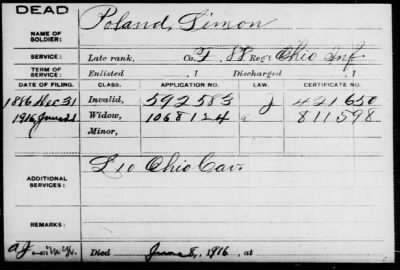 DEAD
NAME OF SOLDIER: Poland, Simon
SERVICE: Late rank, Co. F, 88 Reg't Ohio Inf.
TERM OF SERVICE: Enlisted , 1 Discharged , 1
DATE OF FILING. CLASS. APPLICATION NO. LAW. CERTIFICATE NO.
1886 Dec 31 Invalid, 592583 J 421650
1916 June 21 Widow, 1068124 811598
Minor,
ADDITIONAL SERVICES: L 10 Ohio Cav.
REMARKS:
Died June 8, 1916, at